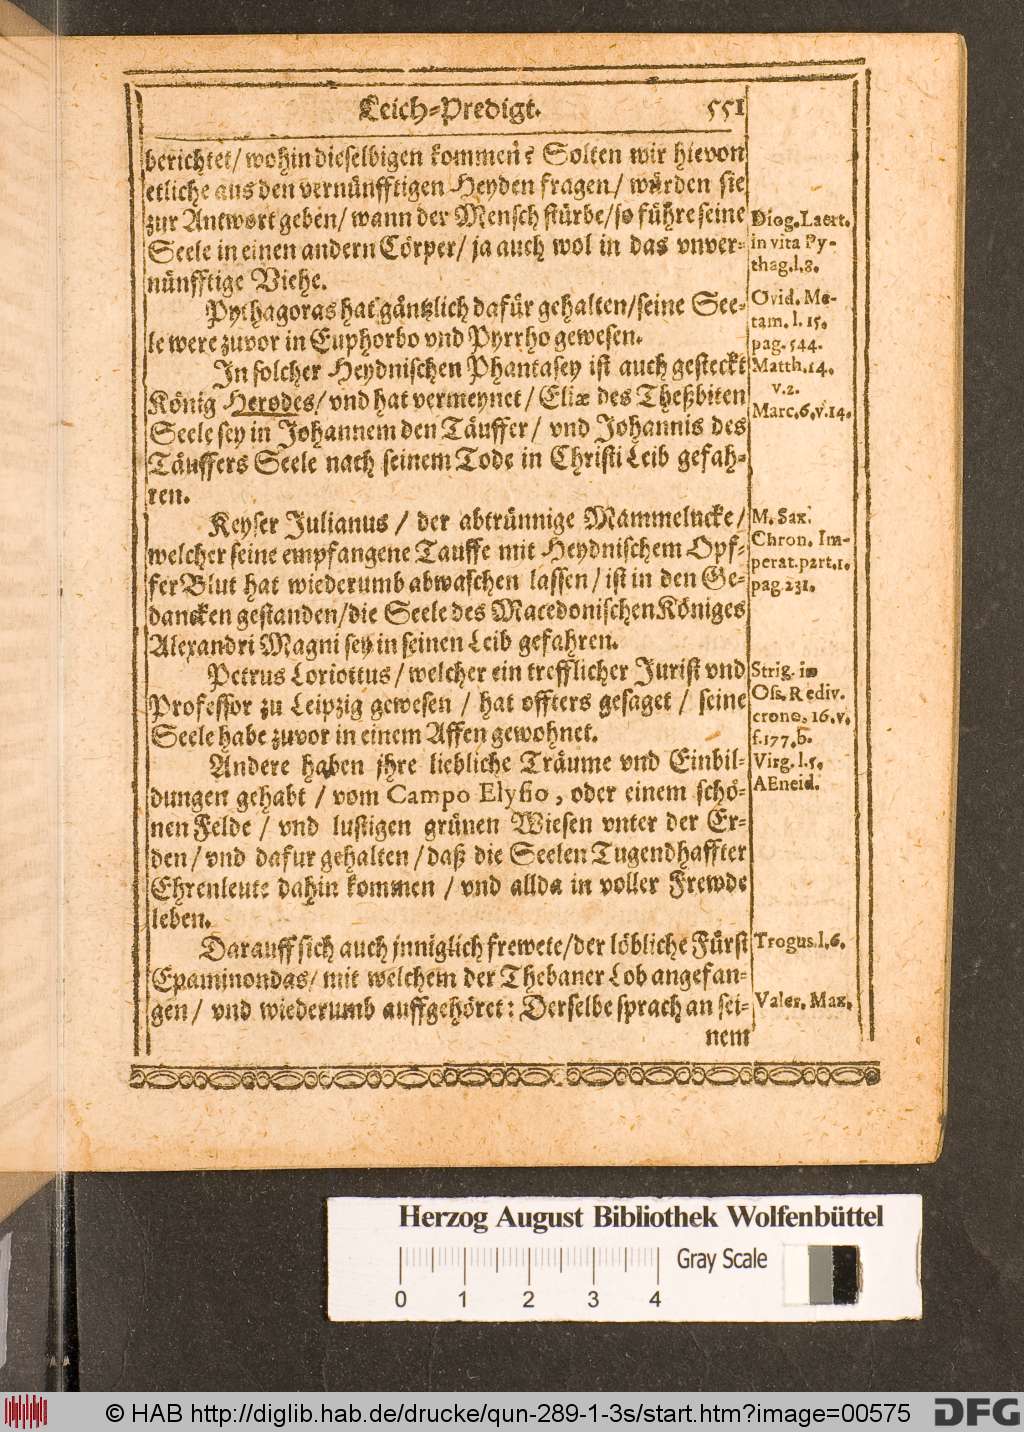 Leich-Predigt. 551
berichtet/ wohin dieselbigen kommen? Solten wir hievon
etliche aus den vernünfftigen Heyden fragen/ würden sie
zur Antwort geben/ wann der Mensch stürbe/ so führe seine
Seele in einen andern Cörper/ ja auch wol in das vnver-
nünfftige Viehe.
Pythagoras hat gäntzlich dafür gehalten/ seine See-
le were zuvor in Euphorbo vnd Pyrrho gewesen.
In solcher Heydnischen Phantasey ist auch gesteckt
König Herodes/ vnd hat vermeynet/ Eliæ des Theßbiten
Seele sey in Johannem den Täuffer/ vnd Johannis des
Täuffers Seele nach seinem Tode in Christi Leib gefah-
ren.
Keyser Julianus / der abtrünnige Mammelucke/
welcher seine empfangene Tauffe mit Heydnischem Opf-
fer Blut hat wiederumb abwaschen lassen/ ist in den Ge-
dancken gestanden/ die Seele des Macedonischen Königes
Alexandri Magni sey in seinen Leib gefahren.
Petrus Loriottus / welcher ein trefflicher Jurist vnd
Professor zu Leipzig gewesen / hat offters gesaget / seine
Seele habe zuvor in einem Affen gewohnet.
Andere haben jhre liebliche Träume vnd Einbil-
dungen gehabt / vom Campo Elysio, oder einem schö-
nen Felde / vnd lustigen grünen Wiesen vnter der Er-
den/ vnd dafur gehalten / daß die Seelen Tugendhaffter
Ehrenleute dahin kommen / vnd allda in voller Frewde
leben.
Darauff sich auch jnniglich frewete/ der löbliche Fürst
Epaminondas/ mit welchem der Thebaner Lob angefan-
gen / vnd wiederumb auffgehöret: Derselbe sprach an sei-
nem
Diog. Laert.
in vita Py-
thag. l. 8.
Ovid. Me-
tam. l. 15.
pag. 544.
Matth. 14.
v. 2.
Marc. 6. v. 14.
M. Sax.
Chron. Im-
perat. part. 1.
pag. 231.
Strig. in
Oss. Rediv.
crone. 16. v.
f. 177. b.
Virg. l. 5.
AEneid.
Trogus. l. 6.
Valer. Max.
Herzog August Bibliothek Wolfenbüttel
Gray Scale
0 1 2 3 4
© HAB http://diglib.hab.de/drucke/qun-289-1-3s/start.htm?image=00575
DFG